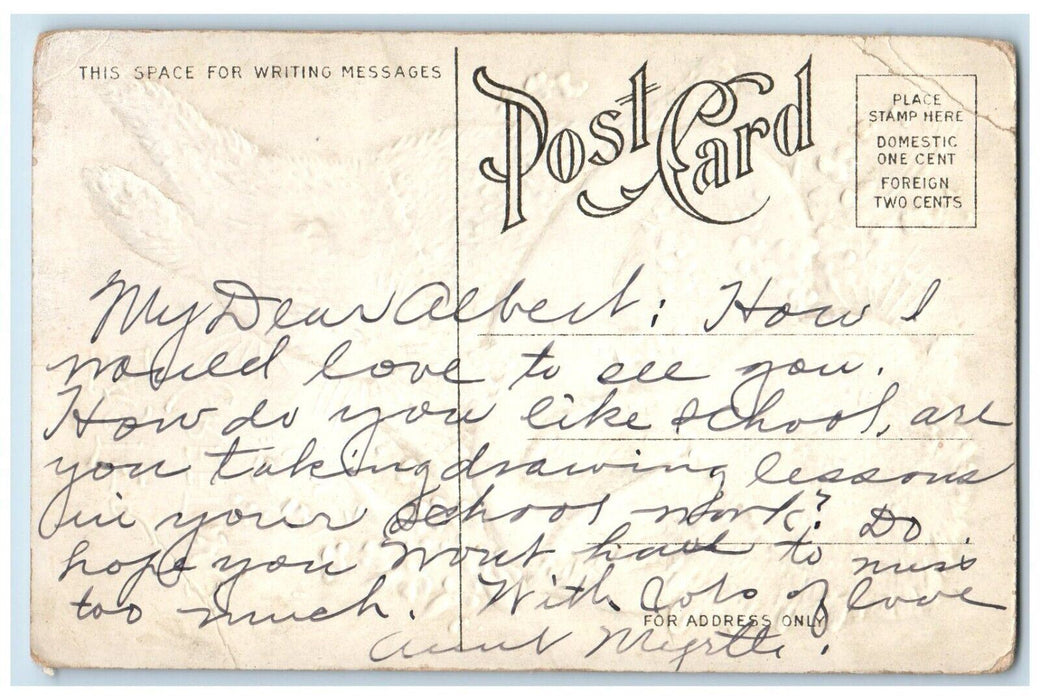 THIS SPACE FOR WRITING MESSAGES
Post Card
PLACE
STAMP HERE
DOMESTIC
ONE CENT
FOREIGN
TWO CENTS
My Dear Albert: How I
would love to see you.
How do you like school, are
you taking drawing lessons
in your school work? Do
hope you wont have to miss
too much. With lots of love
FOR ADDRESS ONLY
Aunt Myrtle.